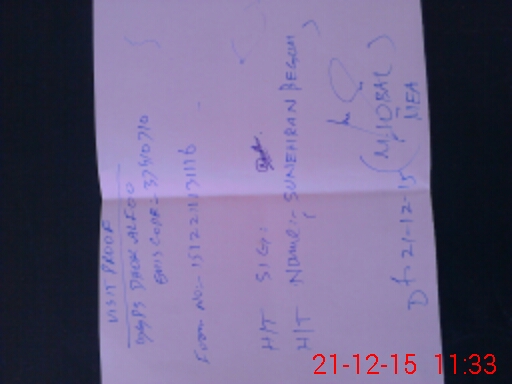 VISIT PROOF
GGPS DHOK ALFOO
EMIS CODE:- 37410710
Form No:-
H/T SIG:
H/T Name:- SUNEHRAN BEGUM
(M. IQBAL)
MEA
Dt. 21-12-15
21-12-15 11:33